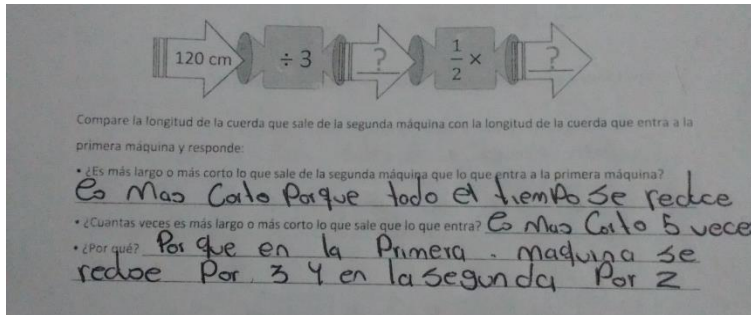 120 cm ÷ 3 ? 1/2 × ?
Compare la longitud de la cuerda que sale de la segunda máquina con la longitud de la cuerda que entra a la
primera máquina y responde:
• ¿Es más largo o más corto lo que sale de la segunda máquina que lo que entra a la primera máquina?
Es Mas Corto Porque todo el tiempo se redce
• ¿Cuantas veces es más largo o más corto lo que sale que lo que entra? Es Mas Corto 5 vece
• ¿Por qué? Por que en la Primera . maquina se
redoe Por 3 Y en la segunda Por 2